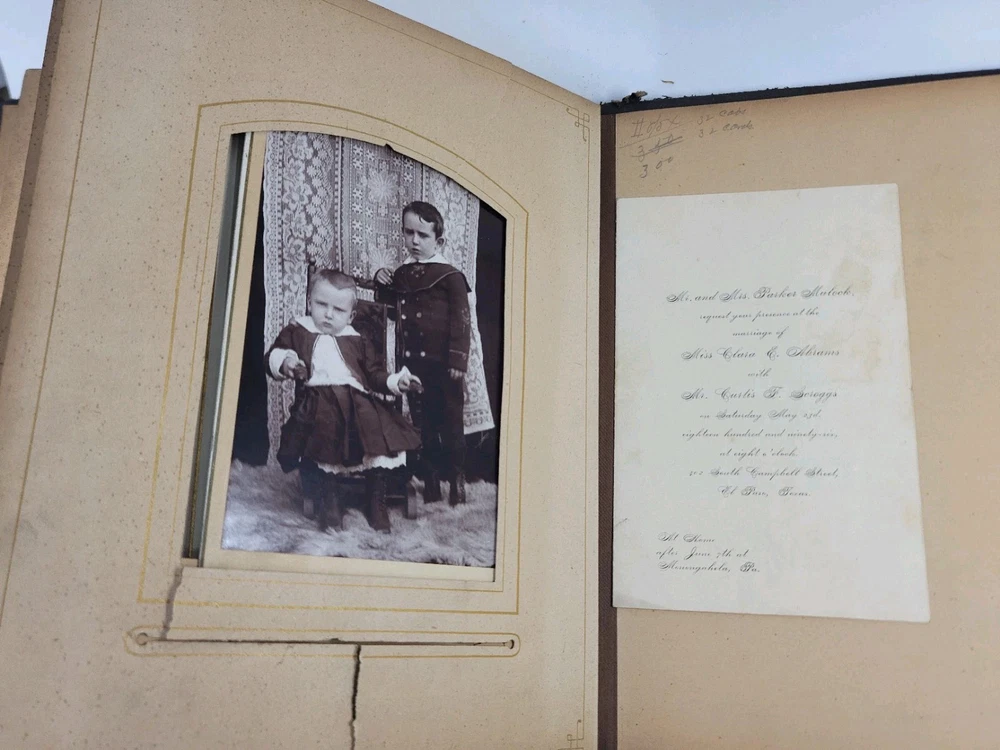 32 cards
3 00
Mr. and Mrs. Parker Matock,
request your presence at the
marriage of
Miss Clara E. Abrams
with
Mr. Curtis F. Scroggs
on Saturday May 23d.
eighteen hundred and ninety-six,
at eight o'clock.
South Campbell Street,
El Paso, Texas.
At Home
after June 7th at
Monongahela, Pa.